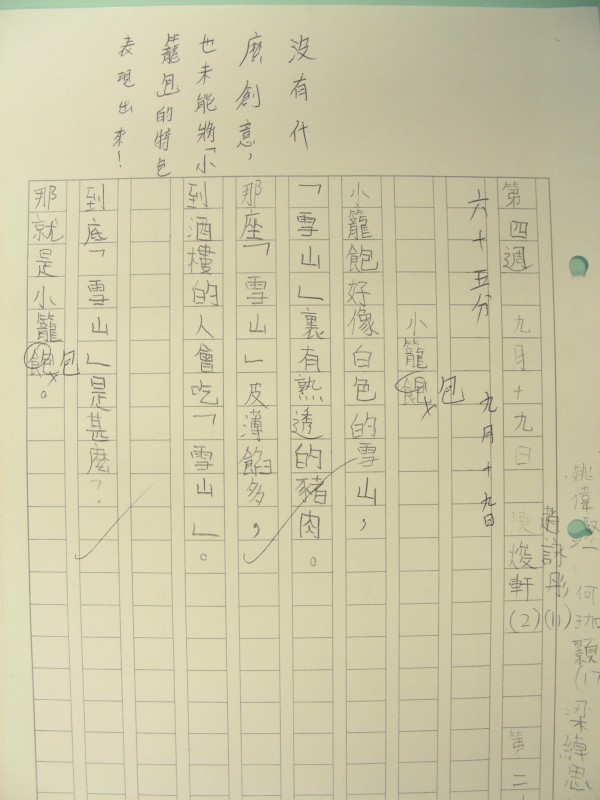 沒有什
麼創意，
也未能將「小
籠包的特色
表現出來！
第四週 九月十九日
煥軒(2)
趙詠彤(11)
姚偉
何
梁緯思
第二
六十五分 九月十九日
小籠飽 包
小籠飽好像白色的雪山，
「雪山」裏有熟透的豬肉。
那座「雪山」皮薄餡多，
到酒樓的人會吃「雪山」。
到底「雪山」是甚麼？
那就是小籠飽 包。